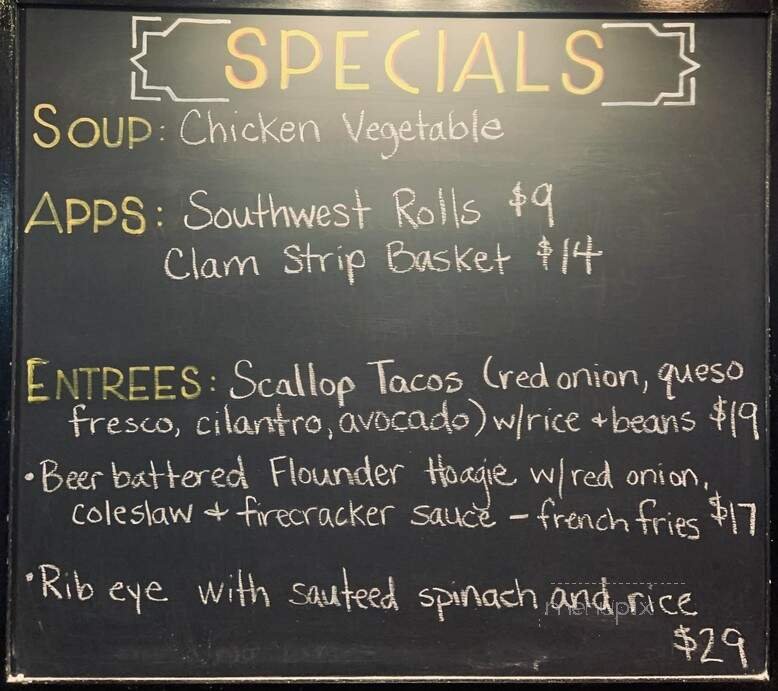 SPECIALS
SOUP: Chicken Vegetable
APPS: Southwest Rolls $9
Clam Strip Basket $14
ENTREES: Scallop Tacos (red onion, queso
fresco, cilantro, avocado) w/rice + beans $19
• Beer battered Flounder Hoagie w/red onion,
coleslaw + firecracker sauce – french fries $17
• Rib eye with sauteed spinach and rice
menupix
$29